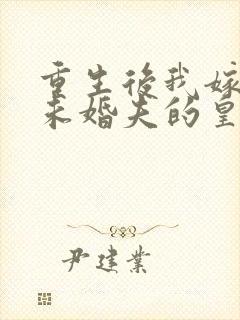 重生后我嫁
未婚夫的皇
尹建業